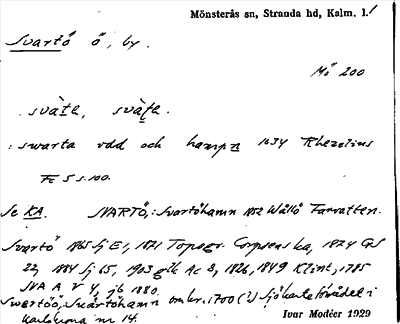 Mönsterås sn, Stranda hd, Kalm. l.
Svartö ö, by.
Mö 200
svàtə, svàtə.
: swarta odd och hampn 1634 Rhezelius
Fc 5 s. 100.
Se KA. SVARTÖ,: Svartöhamn 1852 Wållö Farvatten.
Svartö 1865 Sj E1, 1821 Topogr. Corpsens ka, 1824 GS
22, 1884 Sj 65, 1903 gek Ac 8, 1826, 1849 Klint, 1785
SVA A V 4, jb 1880.
Swertöö, Swärtöhamn omkr. 1700 (?) Sjökarteförrådet i
Karlskrona nr 14. Ivar Modéer 1929